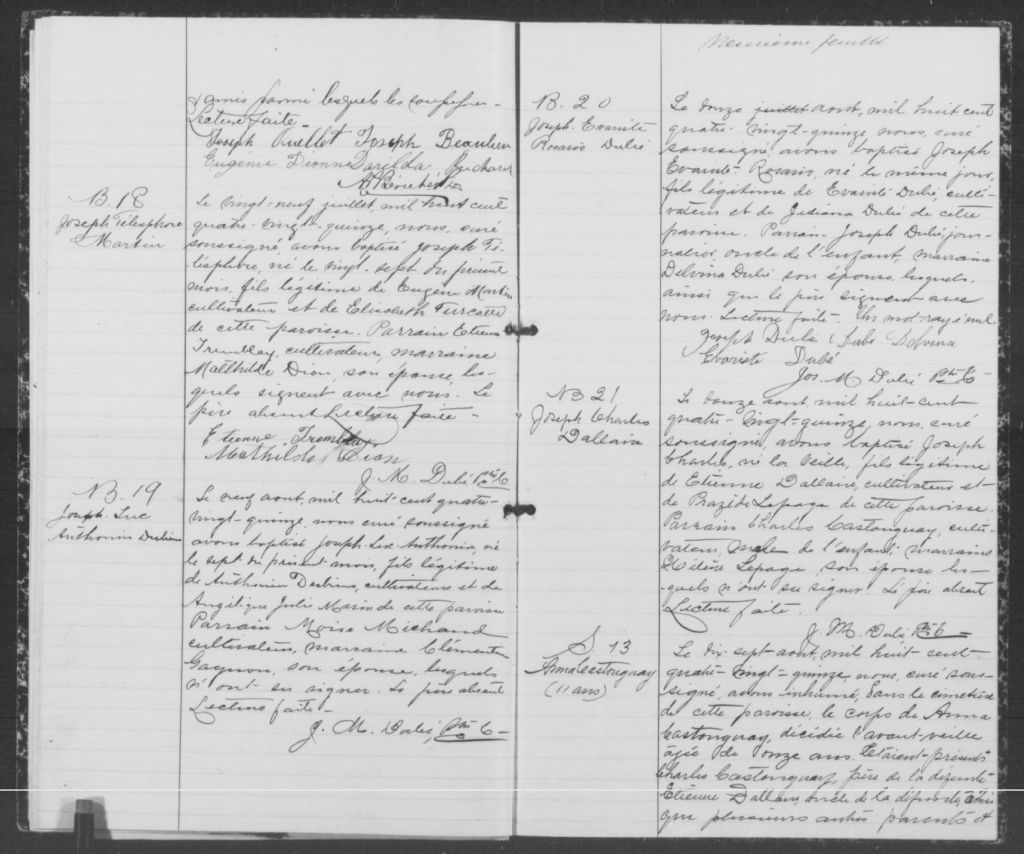 & amis parmi lesquels les soussignés
Lecture faite -
Joseph Ouellet Joseph Beaulieu
Eugénie Dionne Zarilda Richard
B. 18
Joseph Télesphore
Martin
Le vingt-neuf juillet, mil huit cent
quatre-vingt-quinze, nous, curé
soussigné avons baptisé Joseph Té-
lesphore, né le vingt-sept du présent
mois, fils légitime de Eugène Martin
cultivateur et de Elisabeth Turcotte
de cette paroisse. Parrain Etienne
Tremblay, cultivateur, marraine
Mathilde Dion, son épouse, les-
quels signent avec nous. Le
père absent Lecture faite -
Etienne Tremblay
Mathilde Dion
J. M. Dubé Ptre C
B. 19
Joseph Luc
Anthonin Dubius
Le neuf aout, mil huit cent quatre-
vingt-quinze, nous curé soussigné
avons baptisé Joseph-Luc Anthonin, né
le sept du présent mois, fils légitime
de Anthonin Dubius, cultivateur et de
Angélique Julie Morin de cette paroisse
Parrain Moise Michaud
cultivateur, marraine Clémentine
Gagnon, son épouse, lesquels
n'ont su signer. Le père absent
Lecture faite -
J. M. Dubé, Ptre C -
Neuvième feuillet
B. 20
Joseph Evariste
Rosario Dubé
Le douze juillet aout, mil huit cent
quatre-vingt-quinze, nous, curé
soussigné avons baptisé Joseph
Evariste Rosario, né le même jour,
fils légitime de Evariste Dubé, culti-
vateur et de Judiana Dubé de cette
paroisse. Parrain Joseph Dubé jour-
nalier, oncle de l'enfant, marraine
Delvina Dubé son épouse lesquels,
ainsi que le père signent avec
nous. Lecture faite. Un mot rayé nul
Joseph Dubé Dubé Delvina
Evariste Dubé
Jos. M. Dubé Ptre C
B 21
Joseph Charles
Dallaire
Le douze aout, mil huit-cent
quatre-vingt-quinze, nous, curé
soussigné, avons baptisé Joseph
Charles, né la veille, fils légitime
de Etienne Dallaire, cultivateur et
de Praxède Lepage de cette paroisse.
Parrain Charles Castonguay, culti-
vateur, oncle de l'enfant, marraine
Lepage son épouse les-
quels n'ont su signer. Le père absent
Lecture faite.
J. M. Dubé Ptre C
S. 13
Anna Castonguay
(11 ans)
Le dix-sept aout, mil huit cent
quatre-vingt-quinze, nous, curé sous-
signé, avons inhumé, dans le cimetière
de cette paroisse, le corps de Anna
Castonguay, décédée l'avant-veille
agée de onze ans. Etaient-présents
Charles Castonguay, père de la défunte
Etienne Dallaire oncle de la défunte, ainsi
que plusieurs autres parents &